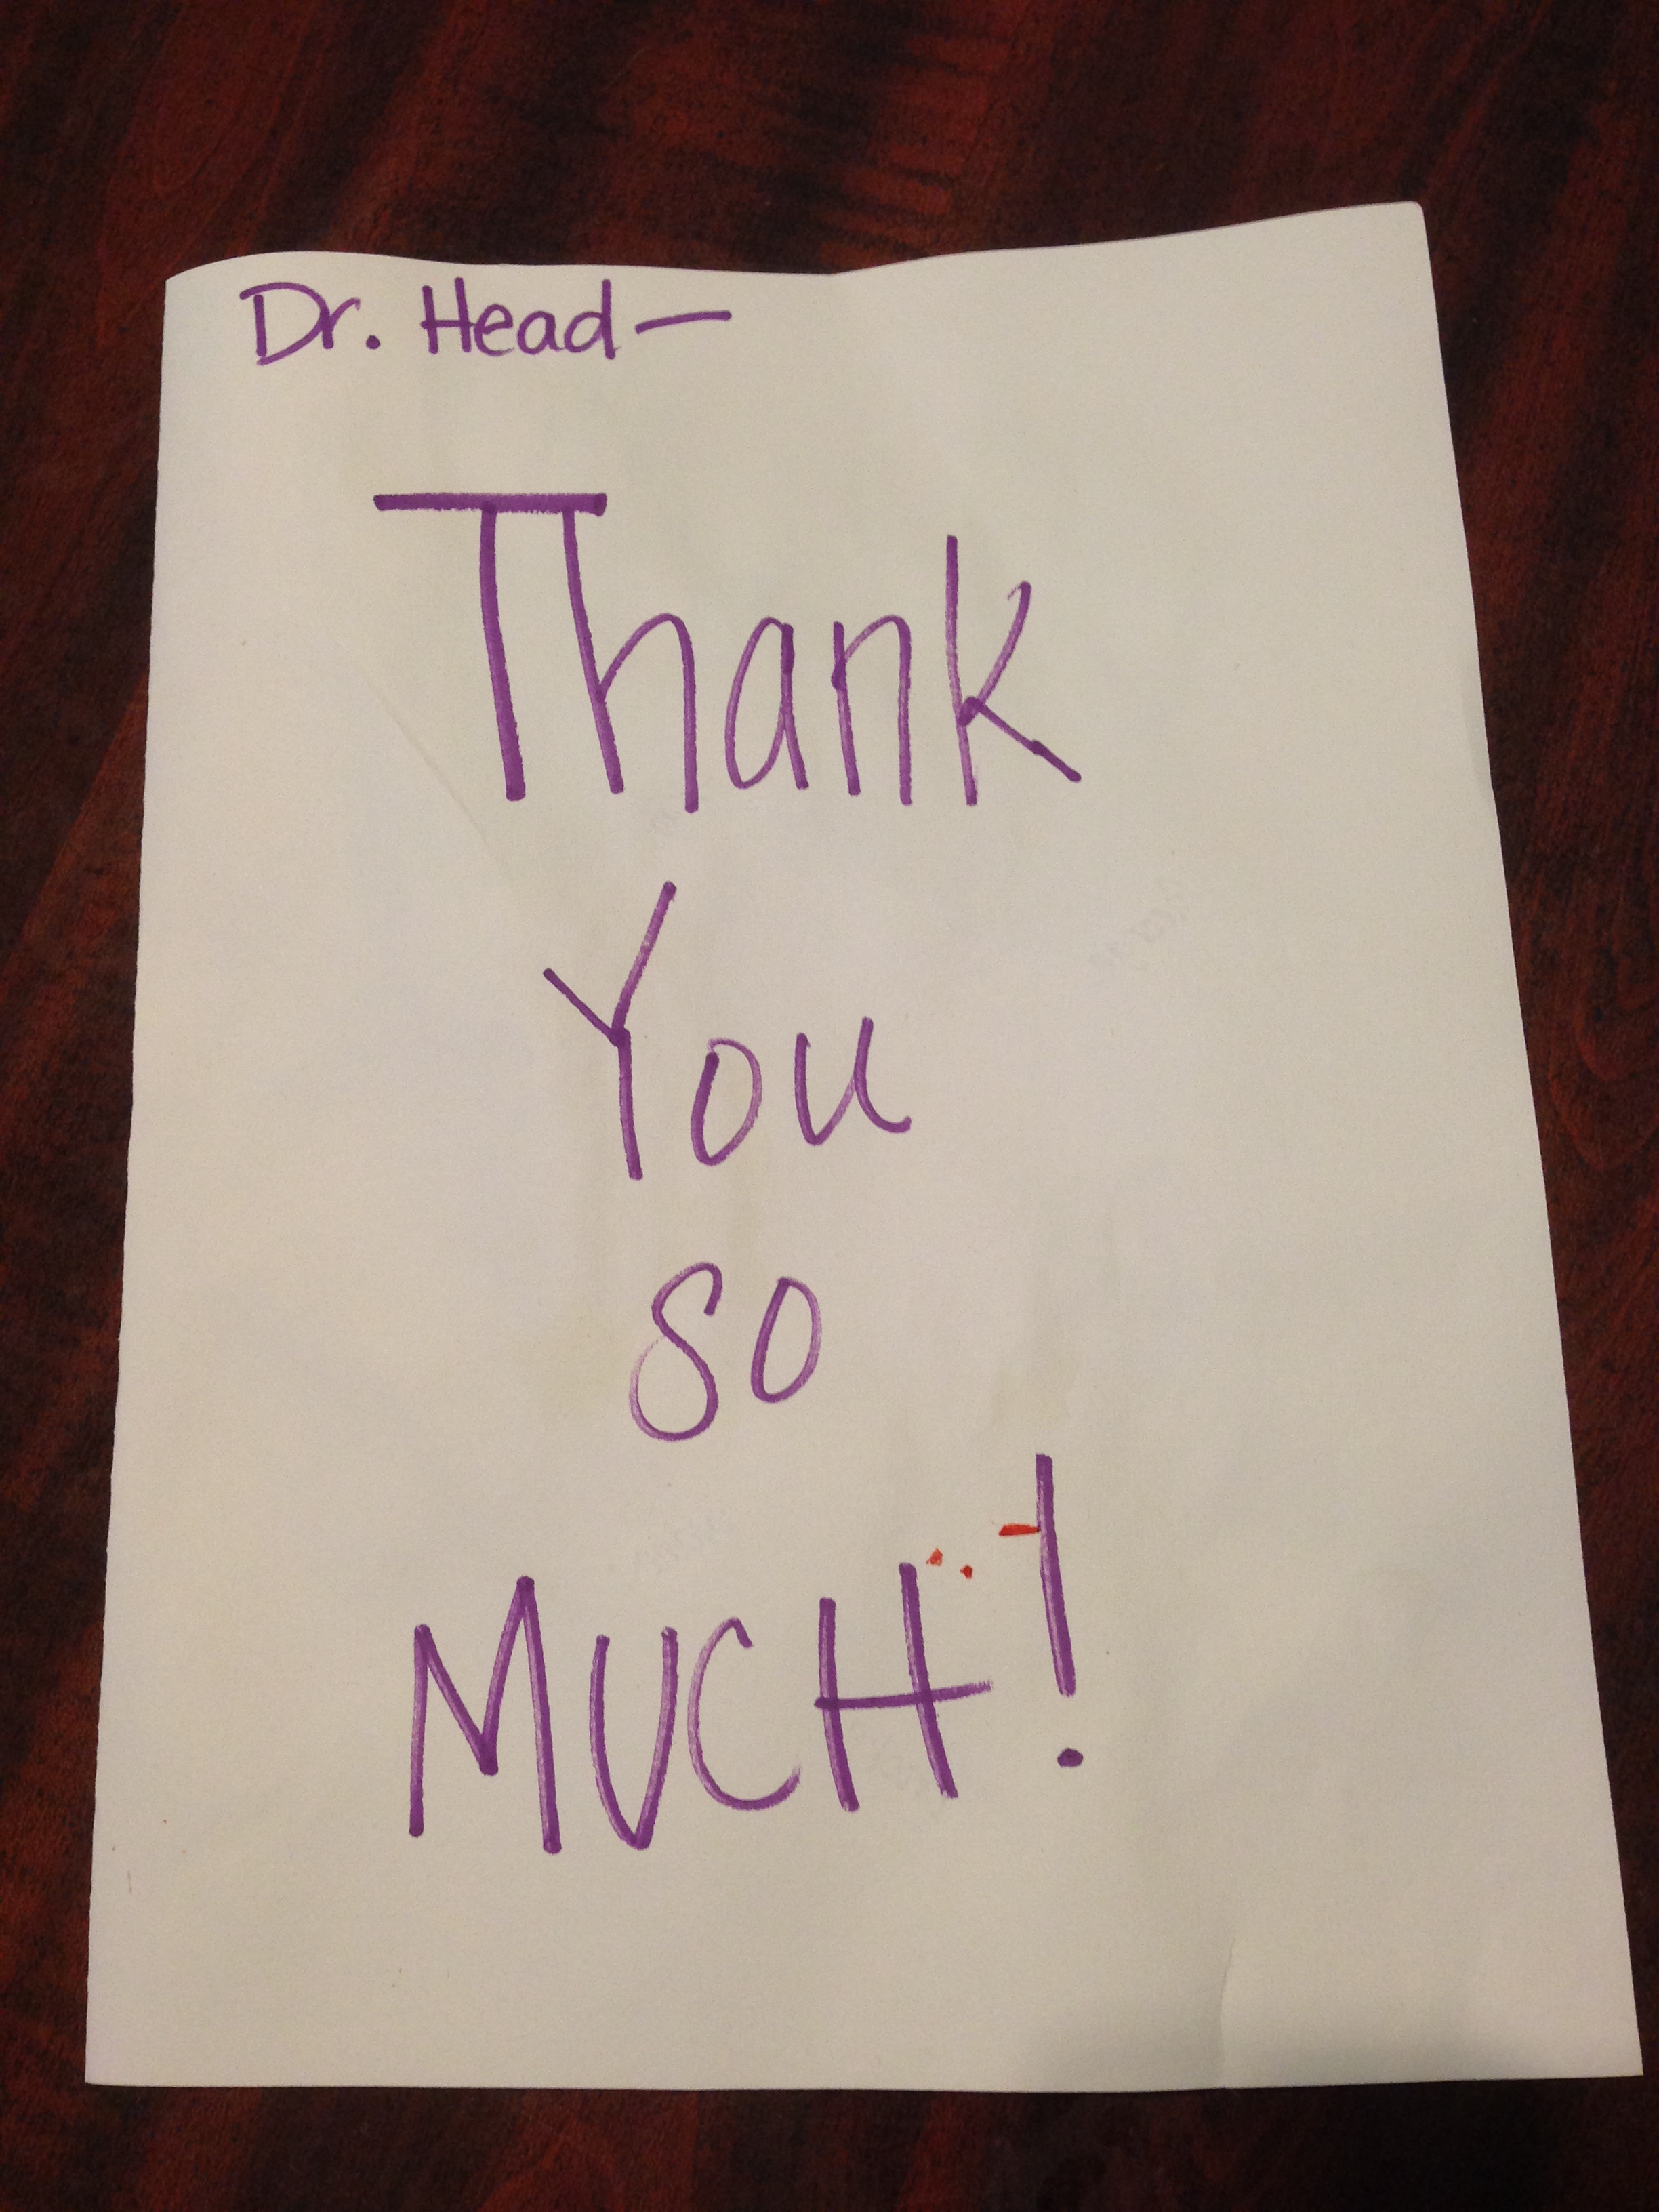 Dr. Head—
Thank
You
so
MUCH!